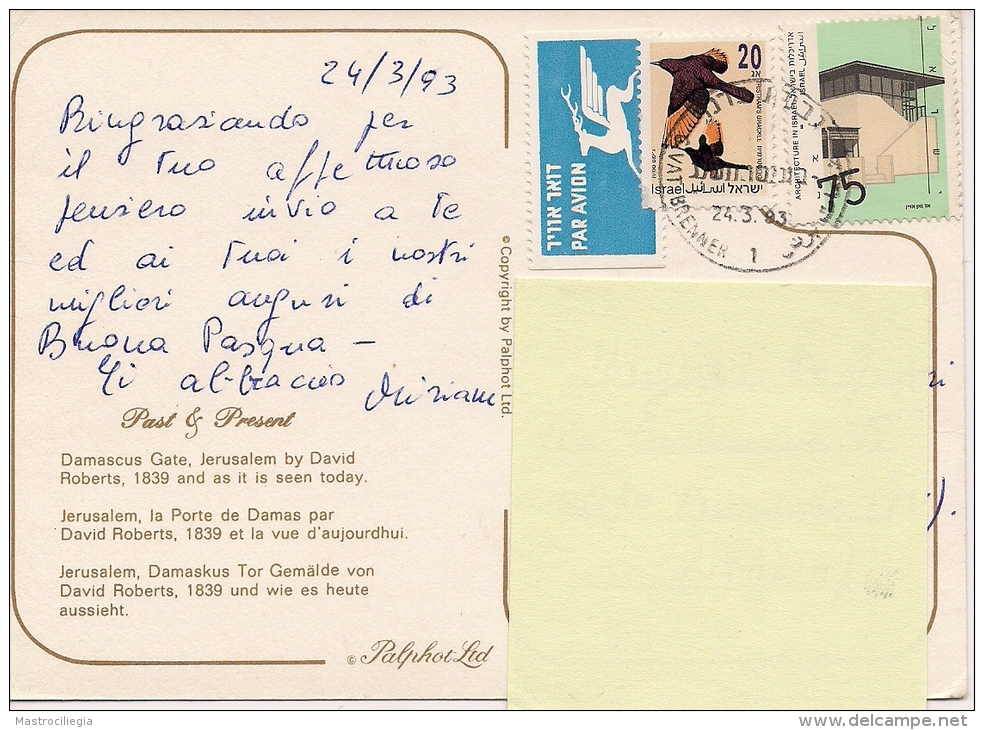 24/3/93
Ringraziando per
il tuo affettuoso
pensiero invio a te
ed ai tuoi i nostri
migliori auguri di
Buona Pasqua —
Ti abbraccio Miriam
Past & Present
Damascus Gate, Jerusalem by David
Roberts, 1839 and as it is seen today.
Jerusalem, la Porte de Damas par
David Roberts, 1839 et la vue d'aujourdhui.
Jerusalem, Damaskus Tor Gemälde von
David Roberts, 1839 und wie es heute
aussieht.
© Palphot Ltd
© Copyright by Palphot Ltd.
דואר אוויר
PAR AVION
20
אג
TRISTRAM'S GRACKLE
Israel اسرائيل ישראל
ARCHITECTURE IN ISRAEL
אדריכלות בישראל
ISRAEL اسرائيل
ישראל
75
גבעת ברנר
24.3.93
GIVAT BRENNER 1
ri
).
Mastrociliegia
www.delcampe.net